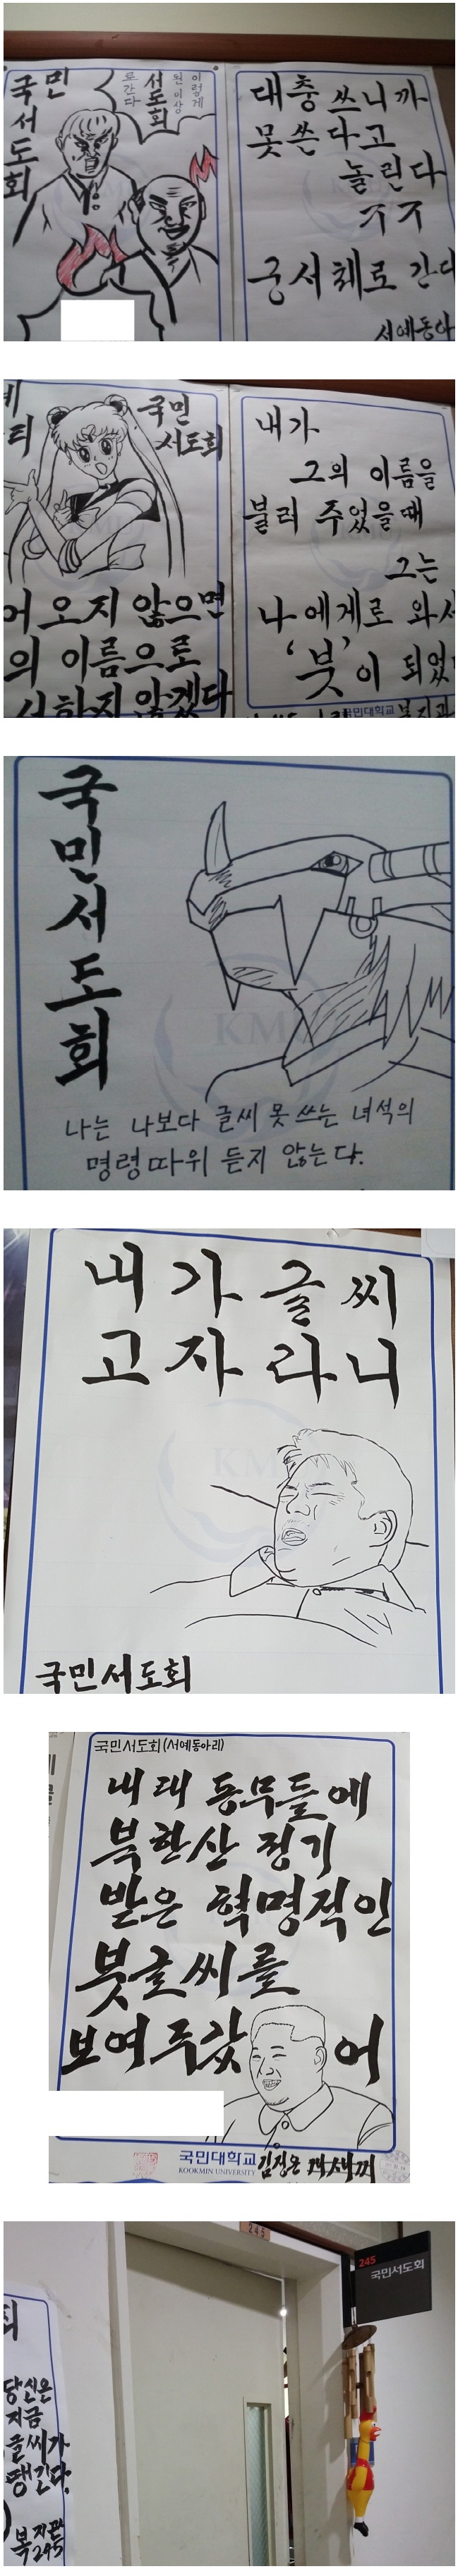 국민
서도회
이렇게
된 이상
서도회
로 간다
대충 쓰니까
못 쓴다고
놀린다
ㅈㅈ
궁서체로 간다
서예동아
국민
서도회
어오지 않으면
의 이름으로
서하지 않겠다
내가
그의 이름을
불러 주었을때
그는
나에게로 와서
'붓'이 되었
국민대학교
국민서도회
KM
나는 나보다 글씨 못 쓰는 녀석의
명령따위 듣지 않는다.
내가 글씨
고자라니
KM
국민서도회
국민서도회(서예동아리)
내 래 동무들에
북한산 정기
받은 혁명적인
붓글씨를
보여주갔어
국민대학교
KOOKMIN UNIVERSITY
김정은 개새끼
245
245
국민서도회
티
당신은
지금
글씨가
땡긴다.
복지관
245